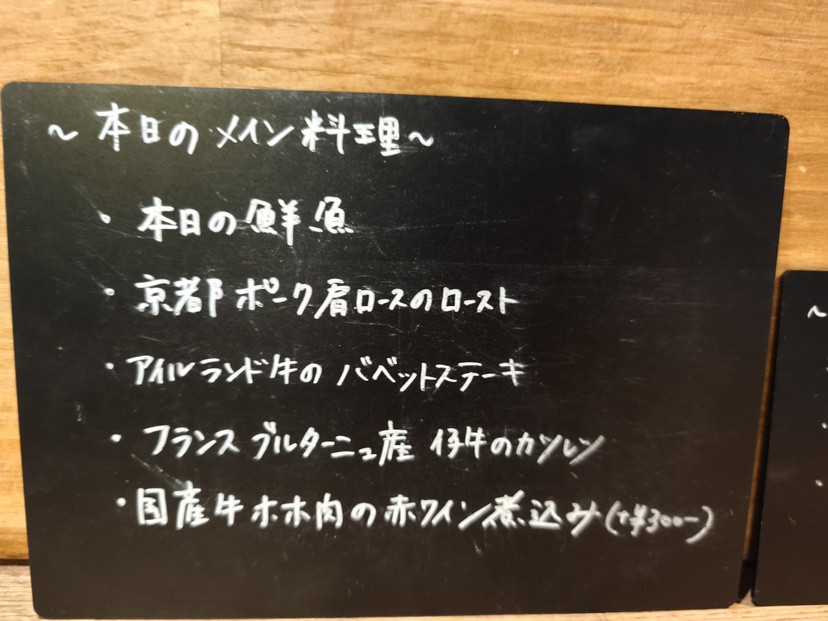 ～本日のメイン料理～
・本日の鮮魚
・京都ポーク肩ロースのロースト
・アイルランド牛のバベットステーキ
・フランスブルターニュ産 仔牛のカツレツ
・国産牛ホホ肉の赤ワイン煮込み(+¥300-)
～